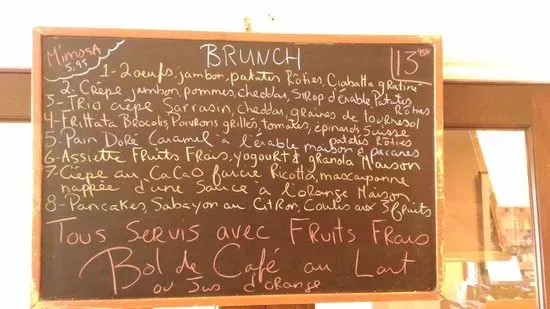 M'imosA
5,95
BRUNCH
13 95
1-2 oeufs, jambon, patates Rôties, Ciabatta gratiné
2- Crêpe jambon, pommes, cheddar, Sirop d'érable, Patates Rôties
3- Trio crêpe Sarrasin, cheddar, graines de tournesol
4- Frittata Brocolis, Poivrons grillés, tomates, épinards, Suisse
patates Rôties
5- Pain Doré Caramel à l'érable maison & pacanes
6- Assiette Fruits Frais, yogourt & granola Maison
7- Crêpe au CaCaO farcie Ricotta, mascarponne
nappée d'une Sauce à l'orange Maison
8- Pancakes, Sabayon au Citron, Coulis aux 3 fruits
Tous Servis avec Fruits Frais
Bol de Café au Lait
ou Jus d'orange